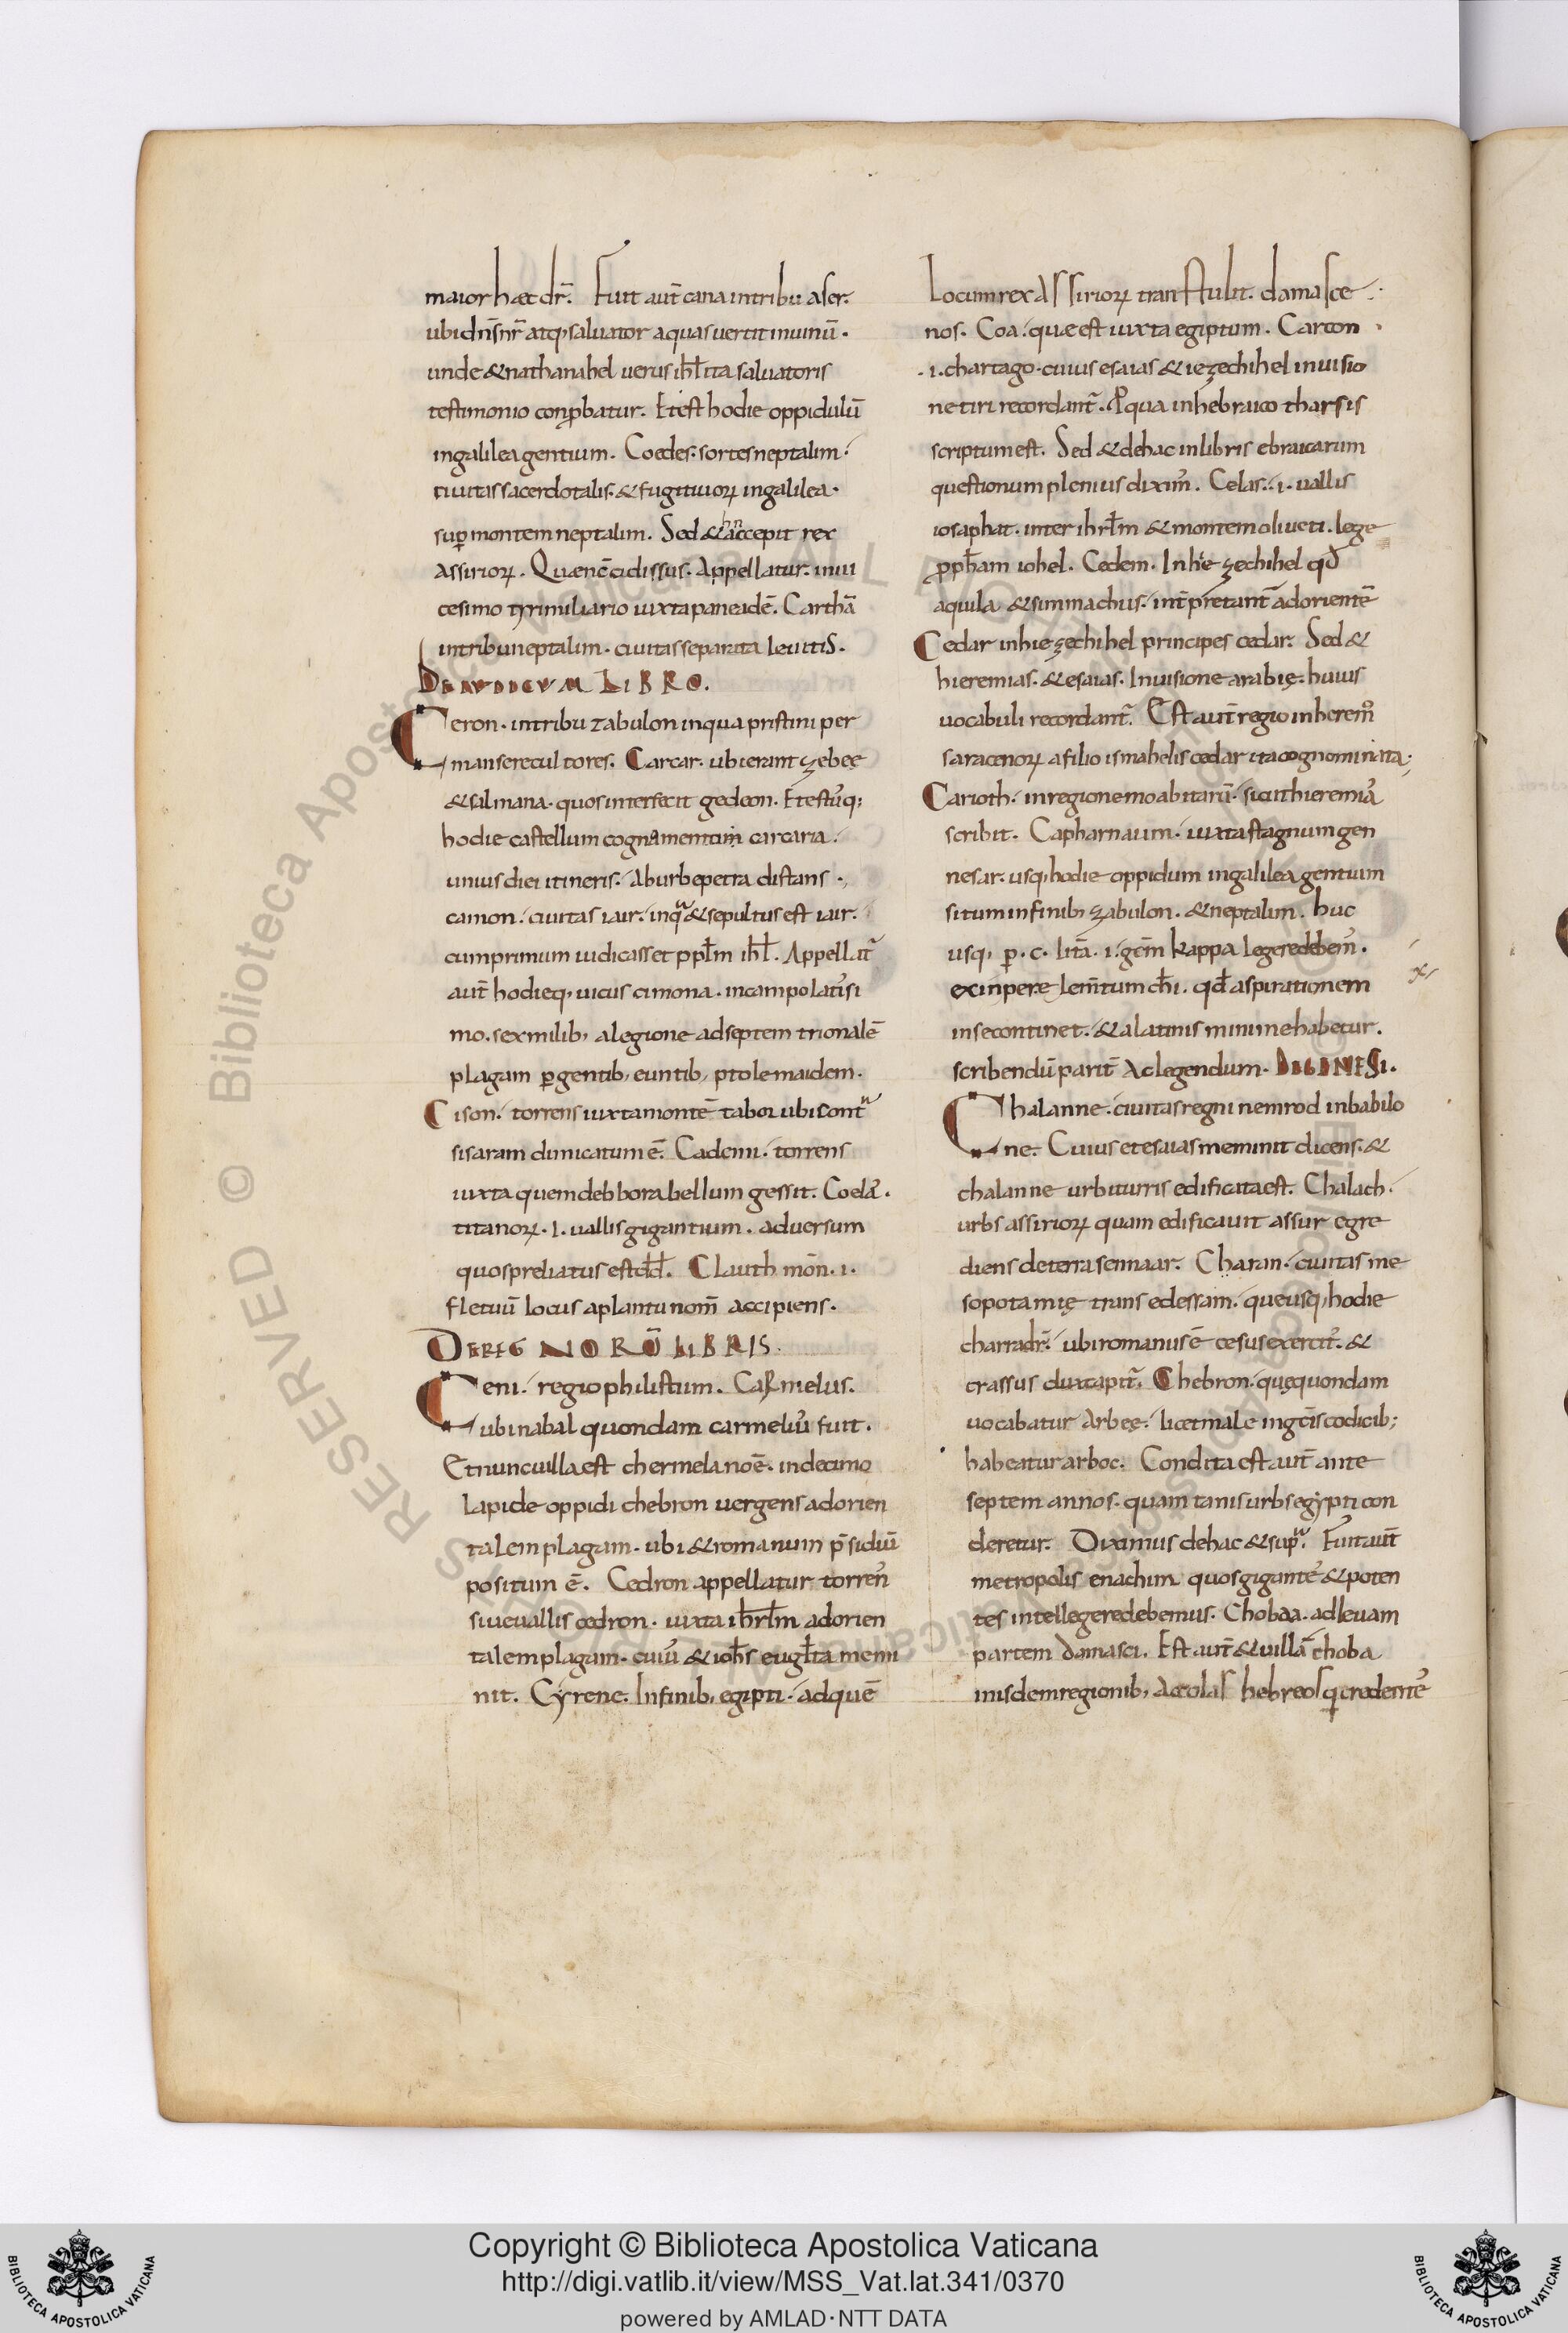 maior hæc dr̃. Fuit aut̃ cana in tribu aser.
ubi dn̄s nr̃ atq; saluator aquas uertit in uinū.
unde & nathanahel uerus ihl̃ita saluatoris
testimonio conp̱batur. Et est hodie oppidulū
in galilea gentium. Coedes. sortes neptalim.
ciuitas sacerdotalis. & fugitiuoꝝ in galilea.
suꝑ montem neptalim. Sed & hãnc cepit rex
assirioꝝ. Quæ nc̄ cidissus. Appellatur. in ui
cesimo tyri miliario iuxta paneadē. Carthā
in tribu neptalim. ciuitas separata leuitis.
DE IUDICUM LIBRO.
Ceron. in tribu zabulon in qua pristini per
mansere cultores. Carcar. ubi erant zebeę
& salmana. quos interfecit gedeon. Et est usq;
hodie castellum cognamentum carcaria.
unius diei itineris. Ab urbe petra distans.
camon. ciuitas iair. in qua & sepultus est iair.
cum primum iudicasset ppl̃m ihl̃. Appellat̃
aut̃ hodieq; uicus cimona. in campo latissi
mo. sex milib; a legione ad septemtrionalē
plagam ꝑgentib; euntib; ptolemaidem.
Cison. torrens iuxta montē tabor ubi contra
sisaram dimicatum ē. Cademi. torrens
iuxta quem debbora bellum gessit. Coela.
titanoꝝ. i. uallis gigantium. aduersum
quos preliatus est dd̃. Clauth mōn. i.
fletuū locus a plantu nom̄ accipiens.
DE REGNORŪ LIBRIS.
Ceni. regio philistum. Carmelus.
ubi nabal quondam carmelius fuit.
Et nunc uilla est chermela noē. in decimo
lapide oppidi chebron uergens ad orien
talem plagam. ubi & romanum p̄sidiū
positum ē. Cedron appellatur torrens
siue uallis cedron. iuxta ihrl̃m ad orien
talem plagam. cuius & ioh̃s eugl̃ta memi
nit. Cyrene. In finib; egipti. ad quē
locum rex Assirioꝝ transtulit. damasce
nos. Coa. quæ est iuxta egiptum. Carcon
.i. chartago. cuius esaias & iezechihel in uisio
ne tiri recordant̃. P̱ qua in hebraico tharsis
scriptum est. Sed & de hac in libris ebraicarum
questionum plenius dixim᾽. Celas. i. uallis
iosaphat. inter ihrl̃m & montem oliueti. lege
p̱ph̃am iohel. Cedem. In hiezechihel qd̃
aquila & simmachus. int̃pretant̃ ad orientē
Cedar in hiezechihel principes cedar. Sed &
hieremias. & esaias. In uisione arabię. huius
uocabuli recordant̃. Est aut̃ regio in heremo
saracenoꝝ a filio ismahelis cedar ita cognominata;
Carioth. in regione moabitarū. sicut hieremias
scribit. Capharnaum. iuxta stagnum gen
nesar. usq; hodie oppidum in galilea gentium
situm in finib; zabulon. & neptalim. huc
usq; ꝑ. c. litã. i. gem̄ kappa legere debem᾽.
exin pere lem̄tum ch̃i. qd̃ aspirationem
in se continet. & a latinis minime habetur.
scribendū parit̃ ac legendum. DE GENESI.
Chalanne. ciuitas regni nemrod in babilo
ne. Cuius et esaias meminit dicens. &
chalanne urbi turris edificata est. Chalach.
urbs assirioꝝ quam edificauit assur egre
diens de terra sennaar. Charan. ciuitas me
sopotamię trans edessam. que usq; hodie
charra dr̃. ubi romanus ē cesus exercit᾽. &
crassus dux capit᾽. Chebron. quę quondam
uocabatur arbeę. licet male in gc̄is codicib;
habeatur arboc. Condita est aut̃ ante
septem annos. quam tanis urbs egypti con
deretur. Diximus de hac & supra. Fuit aut̃
metropolis enachim quos gigantes & poten
tes intellegere debemus. Chobaa. ad leuam
partem damasci. Est aut̃ & uilla choba
in isdem regionib; accolas hebreos q̱ credentes
Copyright © Biblioteca Apostolica Vaticana
http://digi.vatlib.it/view/MSS_Vat.lat.341/0370
powered by AMLAD·NTT DATA